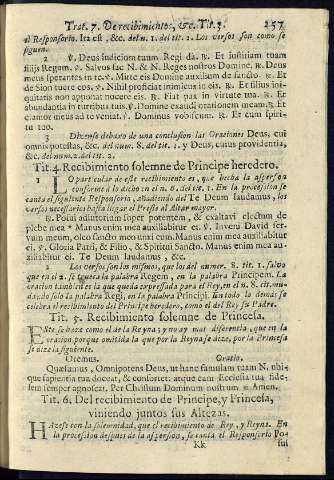 Trat. 7. De recibimientos, &c. Tit. 3. 257
el Responsorio. Ita est, &c. del n. 1. del tit. 1. Los versos son como se
siguen.
2 ℣. Deus iudicium tuum Regi dà. ℟. Et iustitiam tuam
filijs Regum. ℣. Salvos fac N. & N. Reges nostros Domine. ℟. Deus
meus sperantes in te. ℣. Mitte eis Domine auxilium de sancto. ℟. Et
de Sion tuere eos. ℣. Nihil proficiat inimicus in eis. ℟. Et filius ini-
quitatis non apponat nocere eis. ℟. Fiat pax in virtute tua. ℟. Et
abundantia in turribus tuis. ℣. Domine exaudi orationem meam. ℟. Et
clamor meus ad te veniat. ℣. Dominus vobiscum. ℟. Et cum spiri-
tu tuo.
3 Diziense debaxo de una conclusion las Oraciones Deus, cui
omnis potestas, &c. del num. 8. del tit. 1. y Deus, cuius providentia,
&c. del num. 2. del tit. 2.
Tit. 4. Recibimiento solemne de Principe heredero.
1 LO particular de este recibimiento es, que hecha la aspersion
conforme à lo dicho en el n. 6. del tit. 1. En la procession se
canta el siguiente Responsorio, añadiendo del Te Deum laudamus, los
versos necessarios hasta llegar el Preste al Altar mayor.
℟. Posui adiutorium super potentem, & exaltavi electum de
plebe mea * Manus enim mea auxiliabitur ei. ℣. Inveni David ser-
vum meum, oleo sancto meo unxi eum. Manus enim mea auxiliabitur
ei. ℣. Gloria Patri, & Filio, & Spiritui Sancto. Manus enim mea au-
xiliabitur ei. Te Deum laudamus, &c.
2 Los versos son los mismos, que los del numer. 8. tit. 1. salvo
que en el 2. se trueca la palabra Regem, en la palabra Principem. La
oracion tambien es la que queda expressada para el Rey, en el n. 8. tit. mu-
dando solo la palabra Regi, en la palabra Principi. En todo lo demàs se
celebra el recibimiento del Principe heredero, como el del Rey su Padre.
Tit. 5. Recibimiento solemne de Princesa.
ESte se haze como el de la Reyna; y no ay mas diferencia, que en la
oracion porque omitida la que por la Reyna se dize, por la Princesa
se dize la siguiente.
Oremus. Oratio.
Quæsumus, Omnipotens Deus, ut hanc famulam tuam N. ubi-
que sapientia tua doceat, & confortet: atque eam Ecclesia tua fide-
lem semper agnoscat. Per Christum Dominum nostrum ℟. Amen.
Tit. 6. Del recibimiento de Principe, y Princesa,
viniendo juntos sus Altezas.
HAzese con la solemnidad, que el recibimiento de Rey, y Reyna. En
la procession despues de la aspersion, se canta el Responsorio Po-
Kk sui